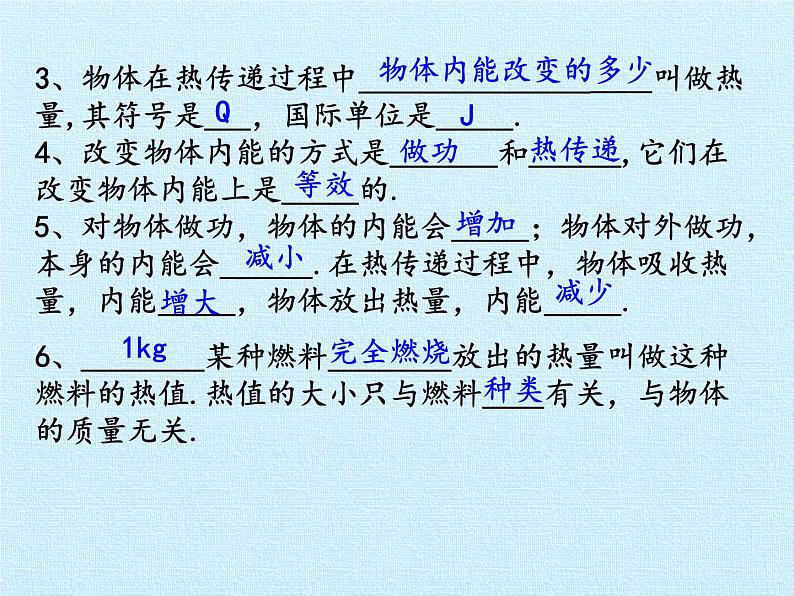 3、物体在热传递过程中物体内能改变的多少叫做热
量,其符号是Q，国际单位是J.
4、改变物体内能的方式是做功和热传递,它们在
改变物体内能上是等效的.
5、对物体做功，物体的内能会增加；物体对外做功，
本身的内能会减小.在热传递过程中，物体吸收热
量，内能增大，物体放出热量，内能减少.
6、1kg某种燃料完全燃烧放出的热量叫做这种
燃料的热值.热值的大小只与燃料种类有关，与物体
的质量无关.